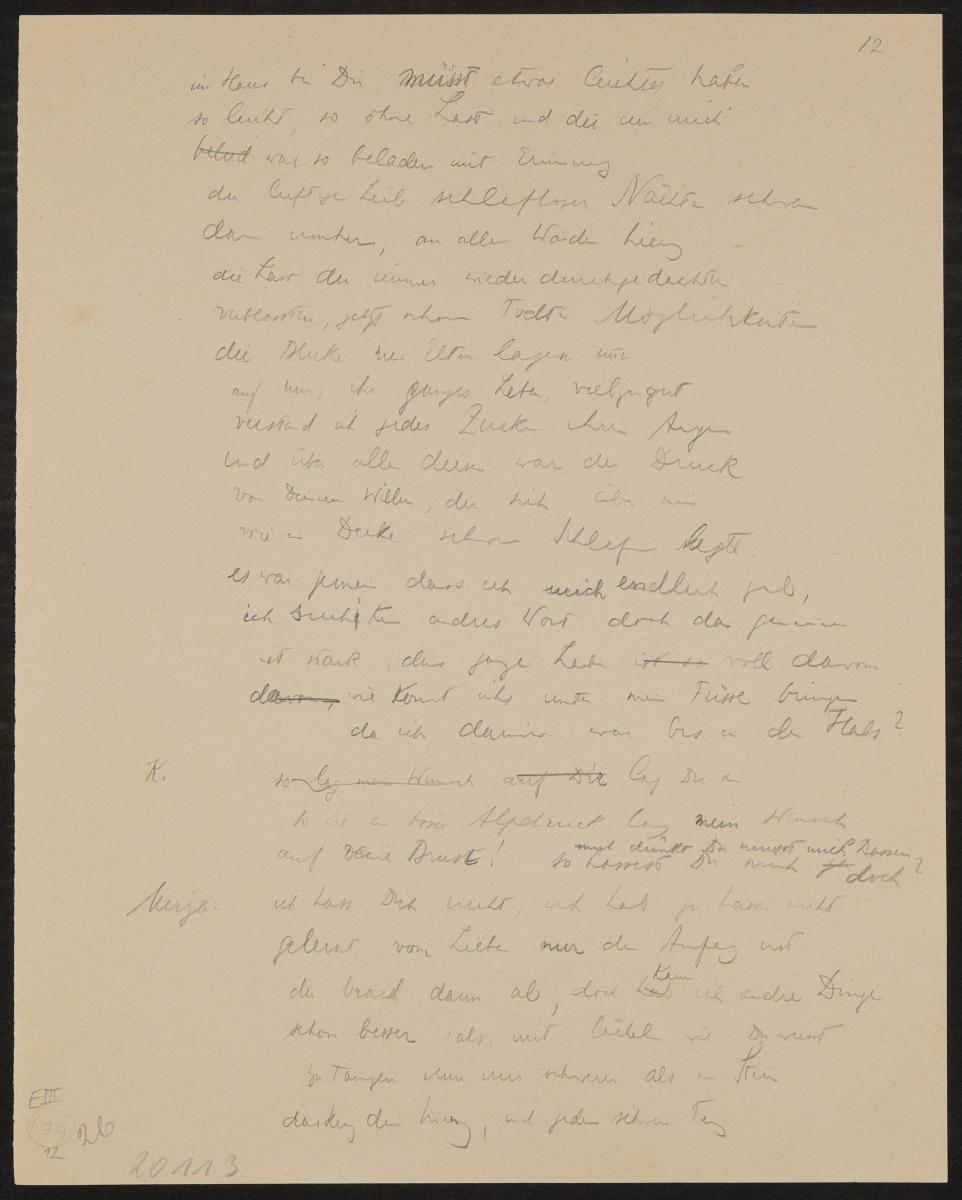 12
im Haus bei Dir müsst etwas leichtes haben
so leicht, so ohne Last und die um mich
belud war so beladen mit Erinnrung
der luftge Leib schlafloser Nächte schwer
darin umher, an allen Wänden hieng
die Last der immer wieder durchgedachten
verblassten, jetzt schon Todten Möglichkeiten
die Blicke meiner Eltern lagen
auf mir, ihr ganzes Leben, vielzugut
verstand ich jedes Zucken ihrer Augen
und über allen diesen war der Druck
von Deinem Willen, der sich über mich
wie eine Decke schweren Schlafes legte.
es war gemein dass ich mich endlich gab,
ich suchte kein andres Wort doch das gemeine
ist stark, das ganze Leben ist so voll davon
davon, wie konnt ichs unter meine Füsse bringen
da ich darinnen war bis an den Hals?
K.
so lag mein Wunsch auf Dir lag Dir an
so wie ein böser Alpdruck lag mein Wunsch
auf Deiner Brust!
mich dünkt Du musst mich hassen
so hassest Du mich doch?
Mirza:
ich hass Dich nicht, ich hab zu hassen nicht
gelernt. vom Lieben nur den Anfang und
der brach dann ab, doch hab kann ich andre Dinge
schon besser als mit Lächeln wie Du weisst
zu Tanzen wenn mir schwerer als ein Stein
das Herz drin hieng, und jeden schweren Tag
E III
179
12
26
20113